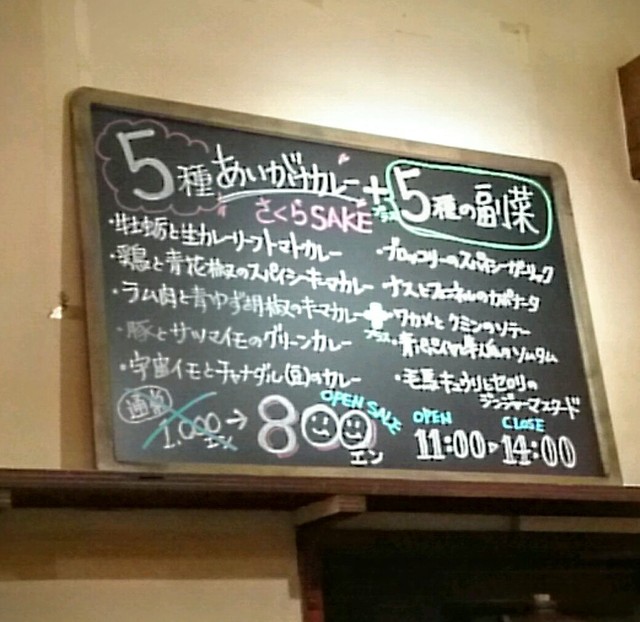 5種あいがけカレー+プラス5種の副菜
さくらSAKE
・牡蛎と生カレーリーフトマトカレー
・鶏と青花椒のスパイシーキーマカレー
・ラム肉と青ゆず胡椒のキーマカレー
・豚とサツマイモのグリーンカレー
・宇宙イモとチャナダル(豆)のカレー
+プラス
・ブロッコリーのスパイシーガーリック
・ナスとフェンネルのカポナータ
・ワカメとクミンのソテー
・青パパイヤと
のソムタム
・毛馬キュウリとセロリの
ジンジャーマスタード
通常
1,000エン→800エン
OPEN SALE
OPEN CLOSE
11:00▷14:00